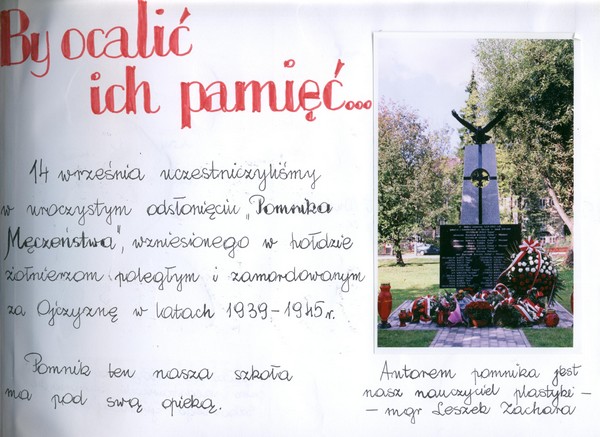 By ocalić
ich pamięć...
14 września uczestniczyliśmy
w uroczystym odsłonięciu „Pomnika
Męczeństwa", wzniesionego w hołdzie
żołnierzom poległym i zamordowanym
za Ojczyznę w latach 1939-1945r.
Pomnik ten nasza szkoła
ma pod swą opieką.
Autorem pomnika jest
nasz nauczyciel plastyki -
- mgr Leszek Zachara